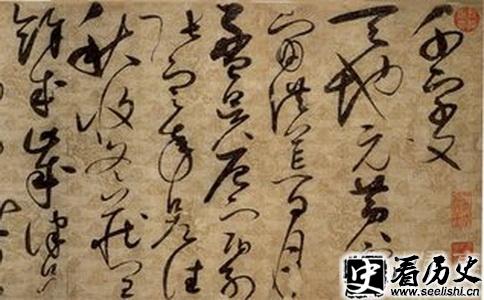 千字文
天地元黃宇
宙洪荒日月
盈昃辰宿列
張寒來暑往
秋收冬藏閏
餘成歲律呂
史 看历史
www.seelishi.cn